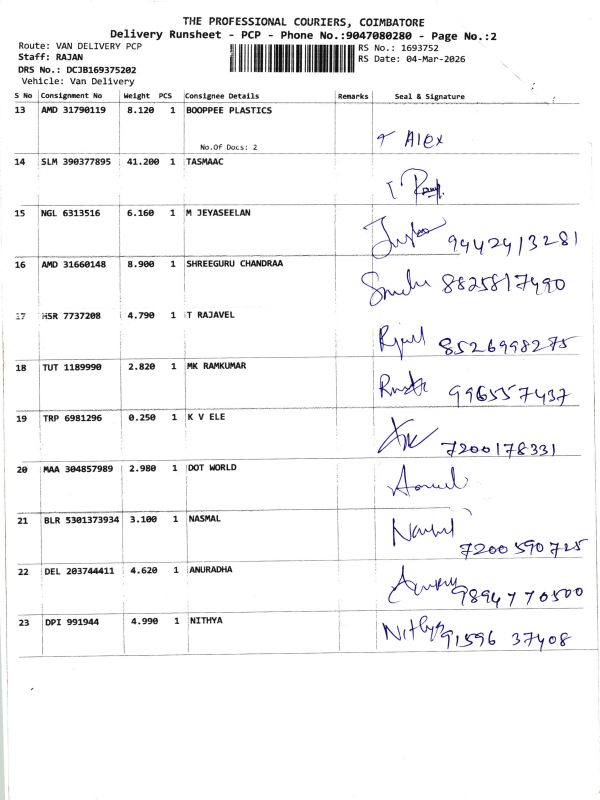 THE PROFESSIONAL COURIERS, COIMBATORE
Delivery Runsheet - PCP - Phone No.:9047080280 - Page No.:2
Route: VAN DELIVERY PCP
RS No.: 1693752
Staff: RAJAN
RS Date: 04-Mar-2026
DRS No.: DCJB169375202
Vehicle: Van Delivery
S No Consignment No Weight PCS Consignee Details Remarks Seal & Signature
13 AMD 31790119 8.120 1 BOOPPEE PLASTICS
No.Of Docs: 2
Alex
14 SLM 390377895 41.200 1 TASMAAC
15 NGL 6313516 6.160 1 M JEYASEELAN
9442413281
16 AMD 31660148 8.900 1 SHREEGURU CHANDRAA
8825817490
17 HSR 7737208 4.790 1 T RAJAVEL
8526998275
18 TUT 1189990 2.820 1 MK RAMKUMAR
996557437
19 TRP 6981296 0.250 1 K V ELE
7200178331
20 MAA 304857989 2.980 1 DOT WORLD
21 BLR 5301373934 3.100 1 NASMAL
7200590725
22 DEL 203744411 4.620 1 ANURADHA
9894770500
23 DPI 991944 4.990 1 NITHYA
Nithya 91596 37408